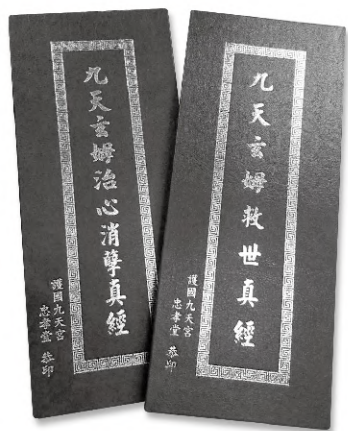 九天玄姆治心消孽真經
護國九天宮
忠孝堂 恭印
九天玄姆救世真經
護國九天宮
忠孝堂 恭印